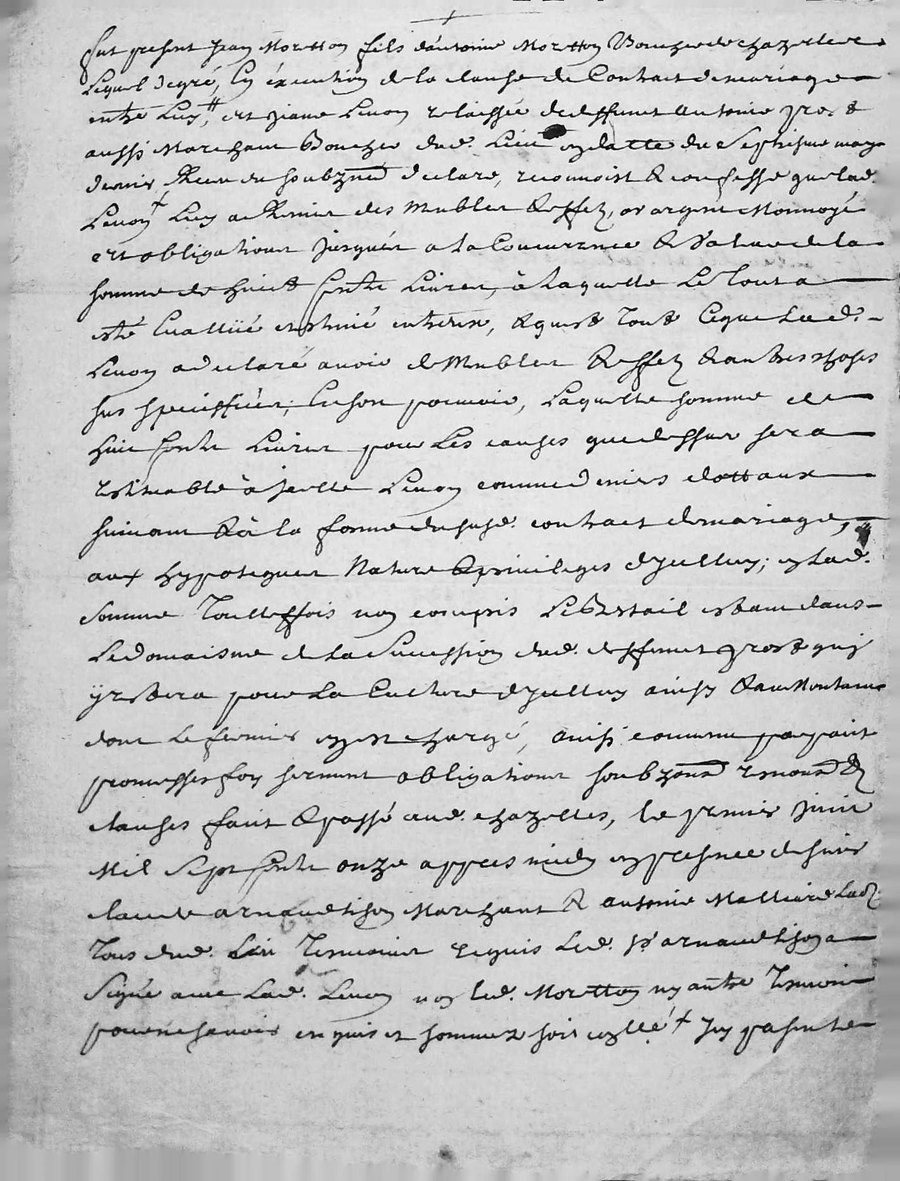 fut present Jean Moretton fils d'antoine Moretton Boucher de chazelles
Lequel de gré, En éxécution de la clause de Contract de mariage
entre Luy, et Jeane Leuon relaissée de deffunct antoine gros
aussi Marchant Boucher dud. Lieu en datte du Septiesme may
dernier Receu du soubzné declare, reconnoist & confesse que lad.
Leuon Luy a Remis des Meubles & effez, or argent Monnoyé
et obligations jusques a la Concurrance & Valeur de la
somme de huict Cents Liures, à Laquelle Le Tout a
esté Eualüé estimé entr'eux, & quest Tout Ce que Lad.
Leuon a declaré auoir de Meubles & effez & autres choses
sus speciffiées, En son pouuoir, Laquelle somme de
huit Cents Liures pour Les causes que dessus sera
restituable à jcelle Leuon comme deniers dottaux
suiuant & à la forme du susd. contract de mariage,
aux hypoteques Nature & priuileges d'yceluy; en Lad.
Somme Touttesfois non compris Le Bestail estant dans
Le domaisne de La Succession dud. deffunct gros quj
y restera pour La Culture d'yceluy ainsy & au Montant
dont Le fermier en est chargé, Ainsi comme par pait
promesses foy serment obligations soubzons renons &
clauses fait & passé aud. chazelles, le premier juin
Mil Sept Cents onze appres midy en presence de sieur
Claude arnaud tison Marchant & antoine
Tous dud. Lieu Temoins requis Led. sr arnaud tison a
Signé auec Lad. Leuon non led. Moretton ny autre Temoin
pour ne sçauoir enquis et sommez